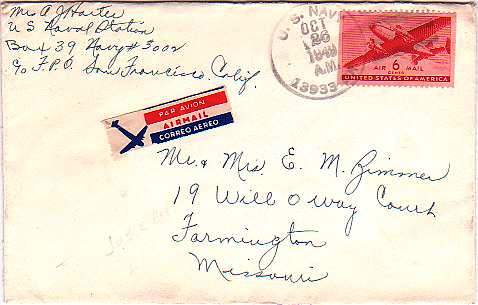 Mr A J Harter
U S Naval Station
Box 39 Navy # 3002
c/o F.P.O. San Francisco, Calif.
U. S. NAVY
OCT
26
1949
A.M.
13933
AIR 6 MAIL
CENTS
UNITED STATES OF AMERICA
PAR AVION
AIRMAIL
CORREO AEREO
Mr. & Mrs. E. M. Zimmer
19 Will O Way Court
Farmington
Missouri